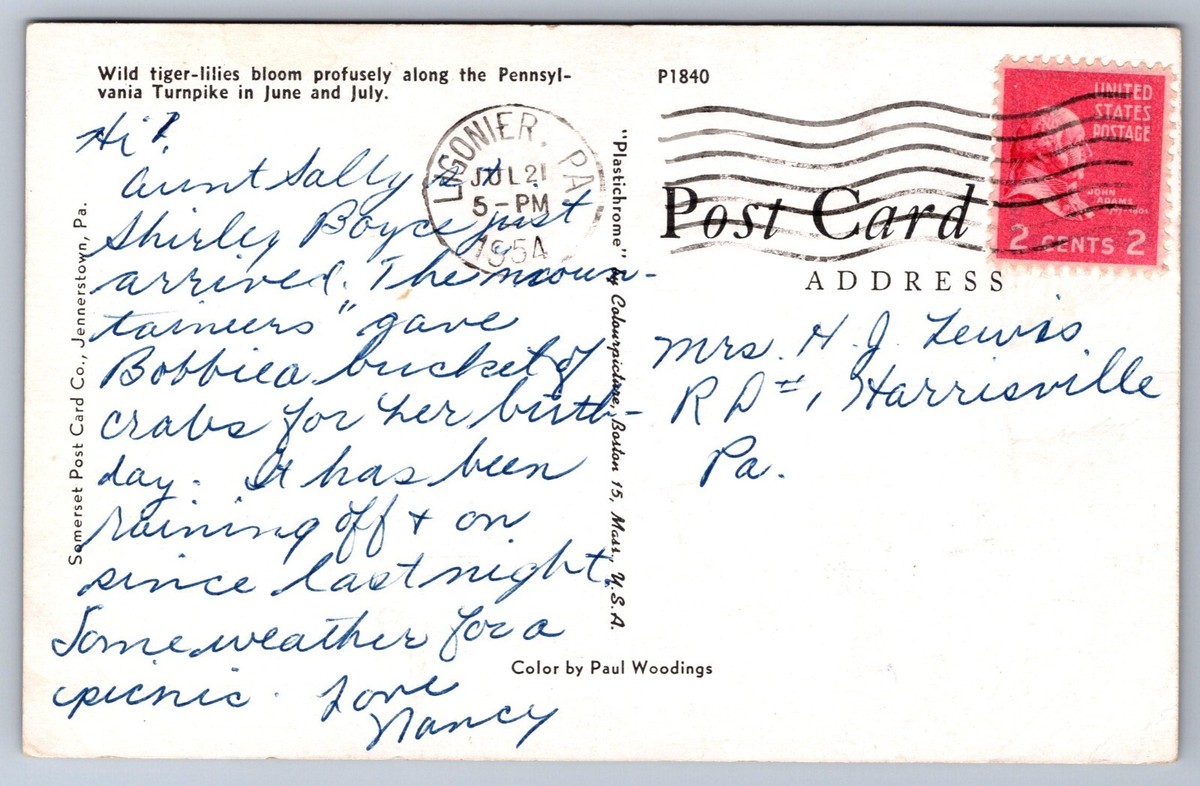 Wild tiger-lilies bloom profusely along the Pennsyl-
vania Turnpike in June and July.
P1840
Hi!
Aunt Sally &
Shirley Boyce just
arrived. The moun-
taineers" gave
Bobbie a bucket of
crabs for her birth-
day. It has been
raining off + on
since last night.
Some weather for a
picnic. Love
Nancy
LIGONIER, PA.
JUL 21
5-PM
1954
Somerset Post Card Co., Jennerstown, Pa.
"Plastichrome" by Colourpicture, Boston 15, Mass., U.S.A.
Color by Paul Woodings
Post Card
ADDRESS
UNITED
STATES
POSTAGE
JOHN
ADAMS
2 CENTS 2
Mrs. H. J. Lewis
R D #1, Harrisville
Pa.